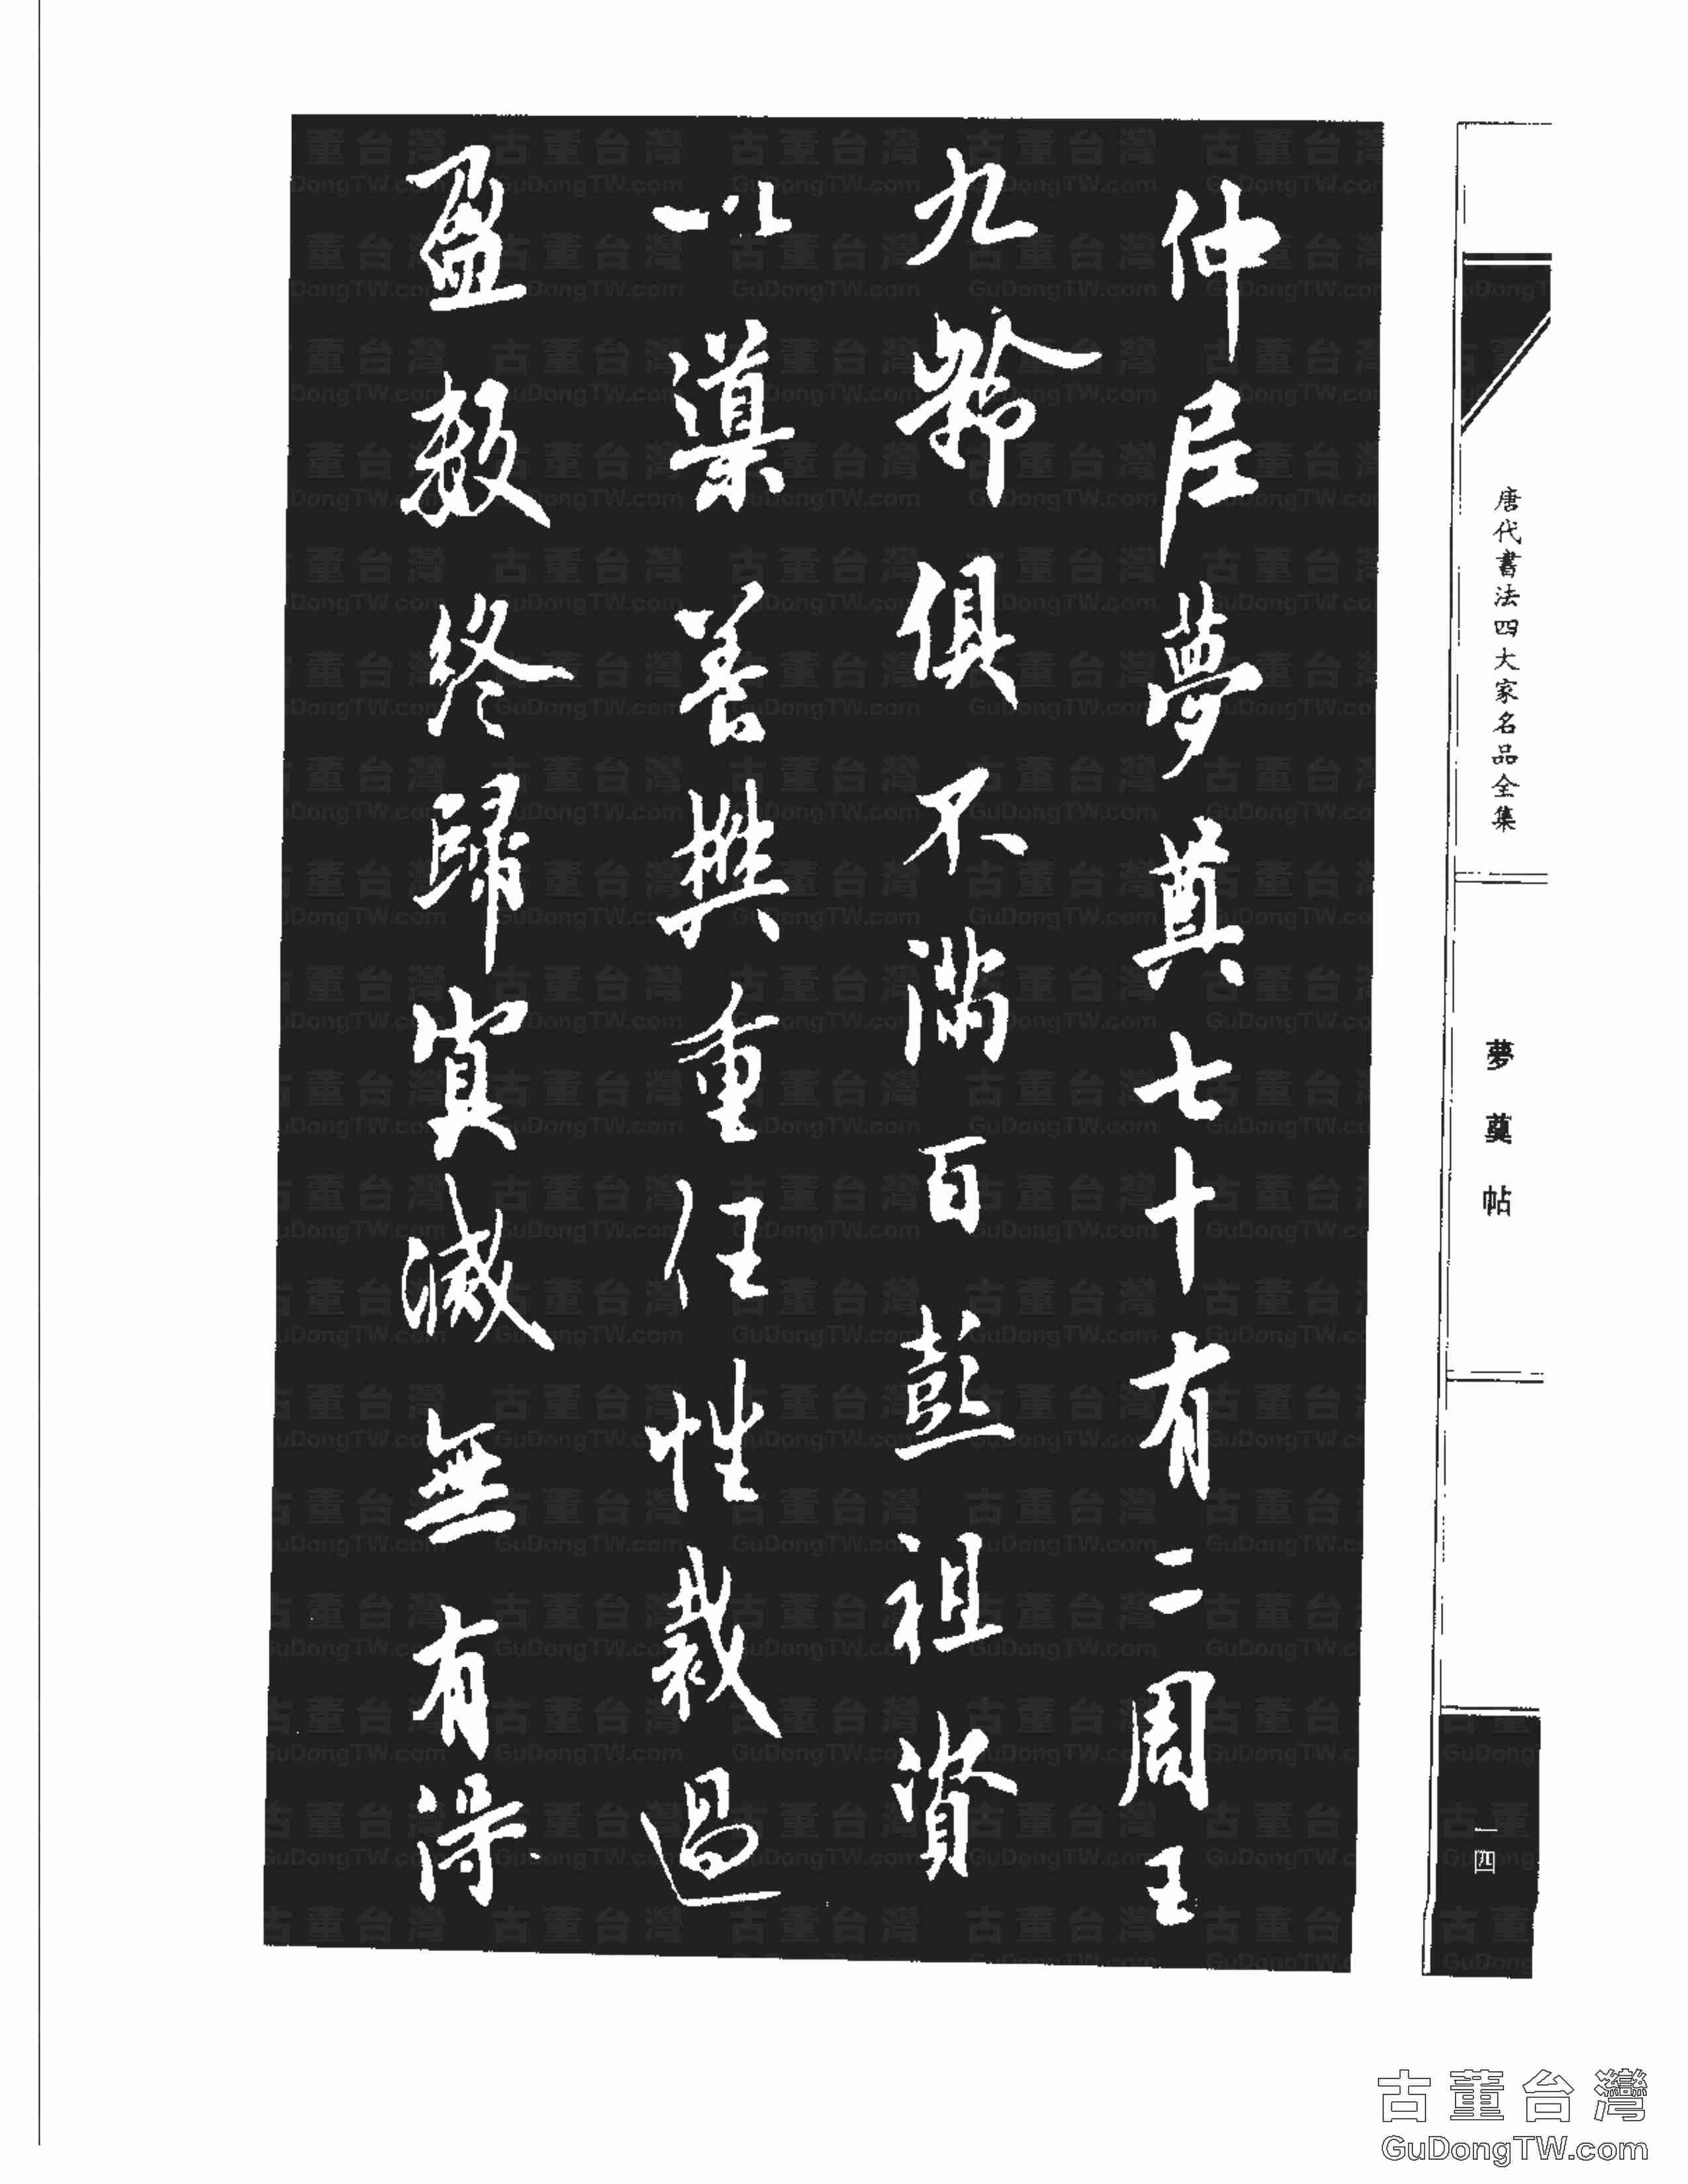 唐代書法四大家名品全集
夢奠帖
一四
仲尼夢奠七十有二周王
九齡俱不滿百彭祖資
以導養樊重任性裁過
盈數終歸冥滅無有得
古董台灣
GuDongTW.com